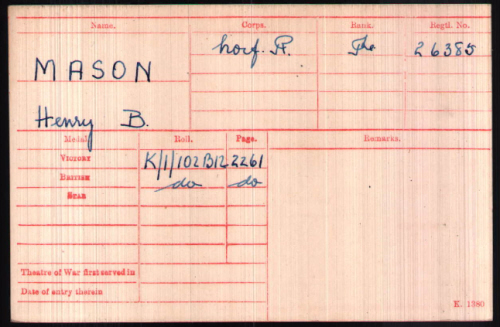 Name. Corps. Rank. Regtl. No.
MASON Norf. R. Pte 26385
Henry B.
Medal. Roll. Page. Remarks.
Victory K/1/102B12 2261
British do do
Star
Theatre of War first served in
Date of entry therein
K. 1380